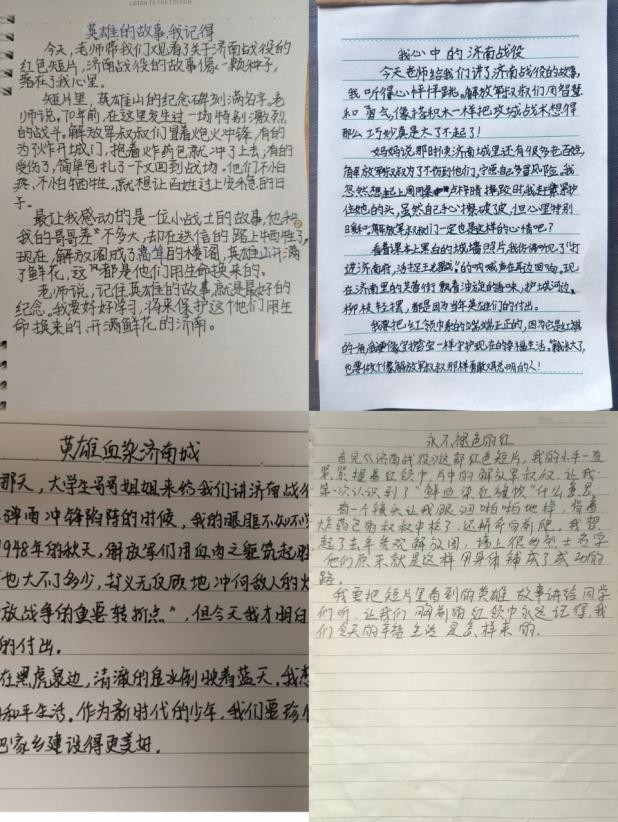 LISTEN TO THE COLOUR
英雄的故事,我记得
今天,老师带我们观看了关于济南战役的
红色短片,济南战役的故事像一颗种子,
落在了我心里。
短片里,英雄山的纪念碑刻满名字。老
师说,70年前,在这里发生过一场特别激烈
的战斗。解放军叔叔们冒着炮火冲锋,有的
为了炸开城门,抱着炸药包就冲了上去;有的
受伤了,简单包扎了一下又回到战场。他们不怕
疼,不怕牺牲,就想让百姓过上安稳的日
子。
最让我感动的是一位小战士的故事,他和
我的哥哥差不多大,却在送信的路上牺牲了,
现在,解放阁成了高耸的楼阁,英雄山开满
了鲜花,这都是他们用生命换来的。
老师说,记住英雄的故事,就是最好的
纪念。我要好好学习,将来保护这个他们用生
命换来的、开满鲜花的济南。
我心中的济南战役
今天老师给我们讲了济南战役的故事,
我听得心怦怦跳。解放军叔叔们用智慧
和勇气,像搭积木一样把攻城战术想得
那么巧妙真是太了不起了!
妈妈说,那时候济南城里还有很多老百姓,
解放军叔叔为了不伤到他们,宁愿自己多冒风险。我
忽然想起上周同桌差点摔跤时,我赶紧护
住她的头,虽然自己手心擦破了皮,但心里特别
暖和。解放军叔叔们一定也是这样的心情吧?
看着课本上黑白的城墙照片,我仿佛听见了"打
进济南府,活捉王耀武"的呐喊声在耳边回响。现
在济南里的芙蓉街飘着油旋的香味,护城河边
柳枝轻摆,都是因为当年英雄们的付出。
我要把红领巾系的端端正正的,因为它是红旗
的一角,我要像守护宝一样守护现在的幸福生活。等我长大了,
也要做个像解放军叔叔那样勇敢又聪明的人!
英雄血染济南城
那天,大学生哥哥姐姐来给我们讲济南战役
弹雨冲锋陷阵的时候,我的眼眶不知不觉
1948年的秋天,解放军们用血肉之躯筑起胜
也大不了多少,却义无反顾地冲向敌人的火
放战争的重要转折点",但今天我才明白
的付出。
在黑虎泉边,清澈的泉水倒映着蓝天,我想
和平生活。作为新时代的少年,我们要珍惜
把家乡建设得更美好。
永不褪色的红
看完《济南战役》这部红色短片,我的小手一直
紧紧握着红领巾,片中的解放军叔叔,让我
第一次认识到了"鲜血染红旗帜"什么意思
有一个镜头让我眼泪啪啪地掉,背着
炸药包的叔叔中枪了,还拼命向前爬,我想
起了去年参观解放阁,墙上很多烈士名字
他们原来就是这样用身体铺成了成功的
路。
我要把短片里看到的英雄故事讲给同学
们听,让我们胸前的红领巾永远记得,我
们今天的幸福生活是怎样来的。